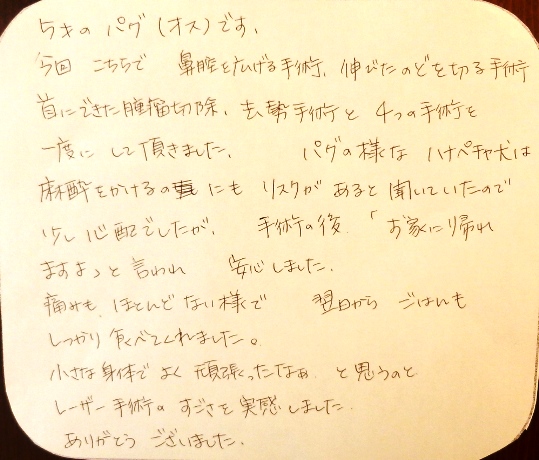 5才の パグ(オス)です、
今回 こちらで 鼻腔を広げる手術、伸びたのどを切る手術
首にできた腫瘤切除、去勢手術と 4つの手術を
一度に して頂きました、 パグの様な ハナペチャ犬は
麻酔をかけるの にも リスクが あると 聞いていたので
少し 心配でしたが、 手術の後、「お家に帰れ
ますよっと 言われ 安心しました、
痛みも、ほとんど ない様で 翌日から ごはんも
しっかり 食べてくれました。
小さな身体で よく 頑張ったなぁ と 思うのと
レーザー手術の すごさを 実感しました、
ありがとう ございました、